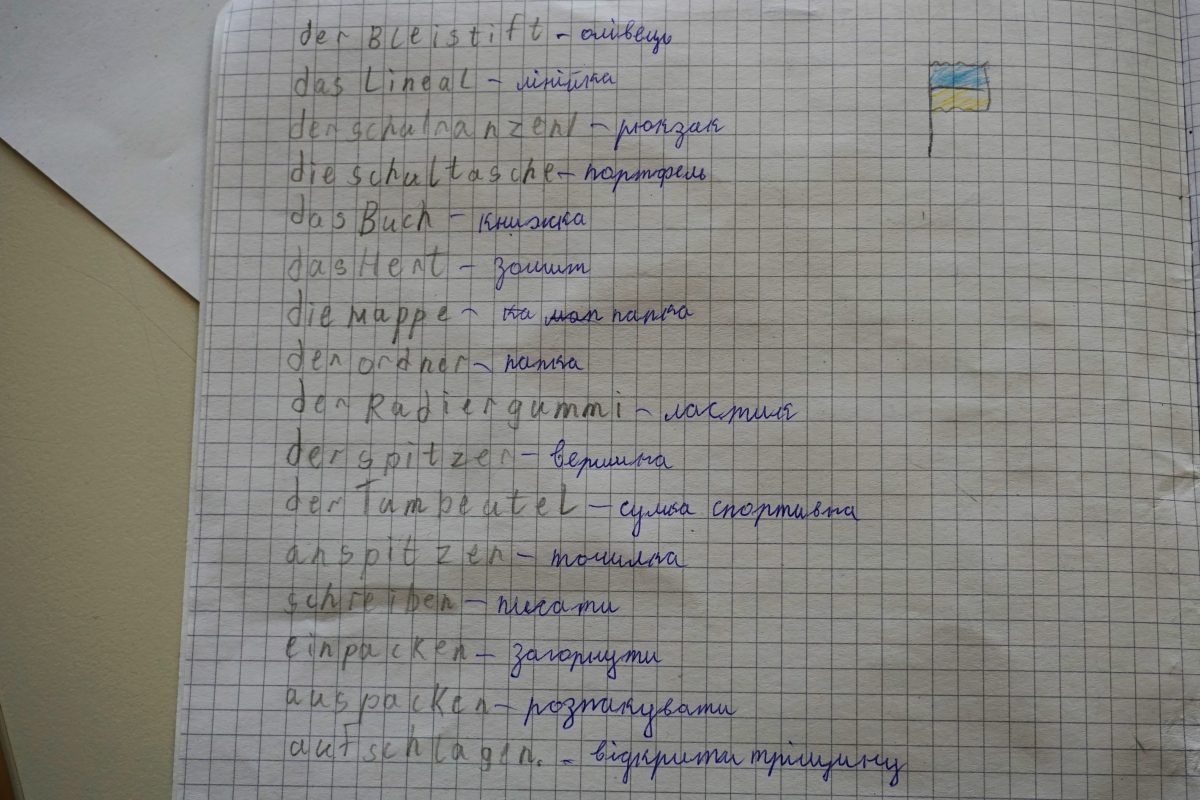 der Bleistift - олівець
das Lineal - лінійка
der schulranzen - рюкзак
die schultasche - портфель
das Buch - книжка
das Heft - зошит
die mappe - папка
der ordner - папка
der Radiergummi - ластик
der spitzer - вершина
der Turnbeutel - сумка спортивна
anspitzen - точилка
schreiben - писати
einpacken - загорнути
auspacken - розпакувати
aufschlagen. - відкрити тріщину